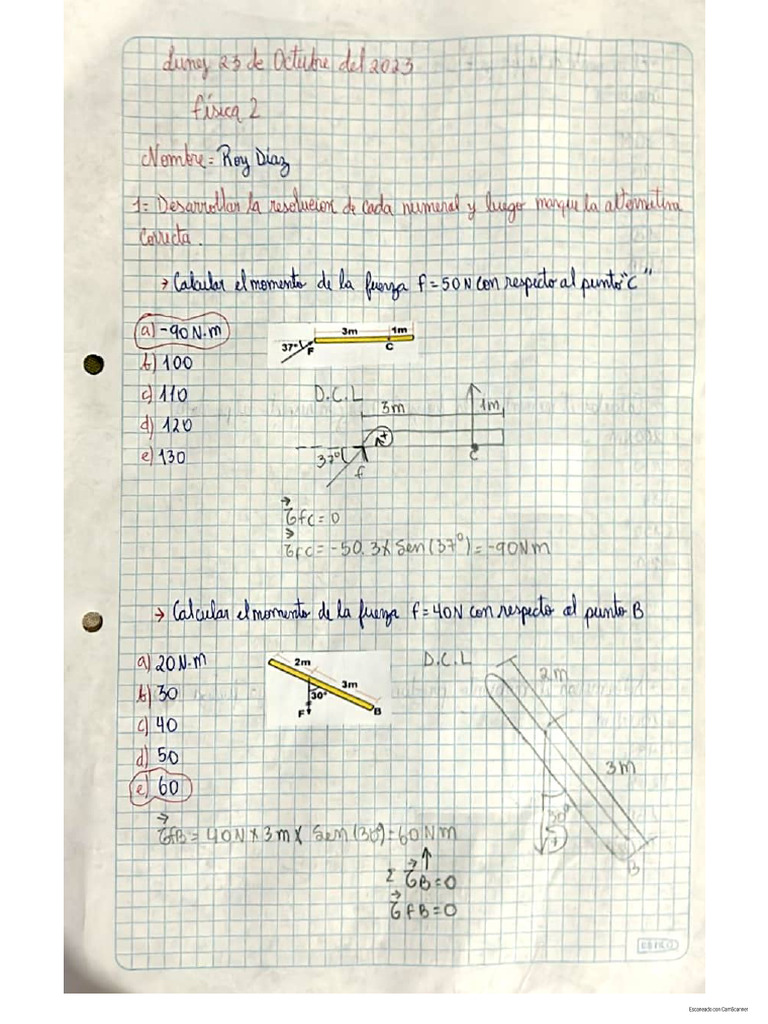 Lunes 23 de Octubre del 2023
física 2
Nombre = Roy Díaz
1= Desarrollar la resolucion de cada numeral y luego marque la alternativa
correcta.
→ Calcular el momento de la fuerza f=50N con respecto al punto "C"
a) -90 N.m
b) 100
c) 110
d) 120
e) 130
3m 1m
37° F C
D.C.L
3m 1m
37° f C
+
τfC = 0
τfC = -50.3 x Sen(37°) = -90Nm
→ Calcular el momento de la fuerza f=40N con respecto al punto B
a) 20 N.m
b) 30
c) 40
d) 50
e) 60
2m
3m
30°
F B
D.C.L
2m
3m
30°
+
B
τfB = 40N x 3m x Sen(30°) = 60Nm
Σ τB = 0
τfB = 0
Escaneado con CamScanner